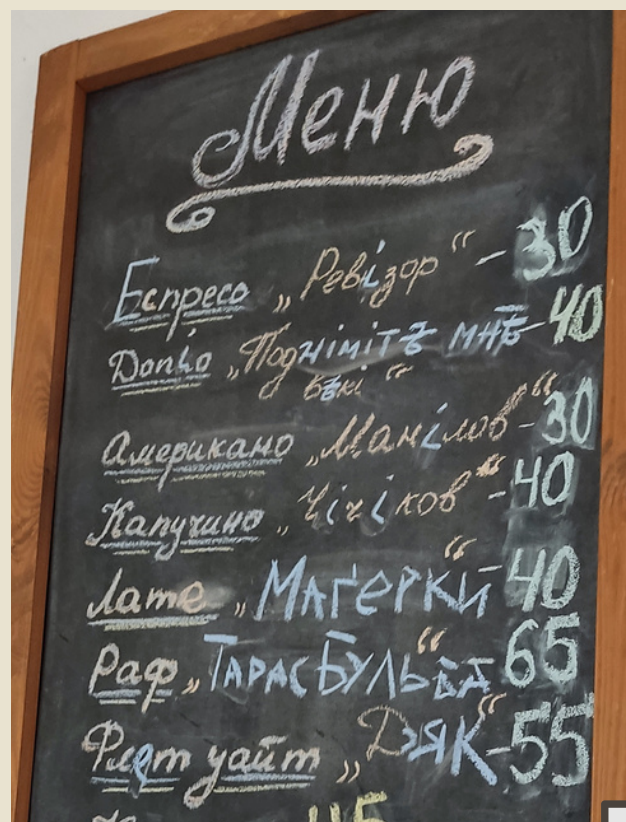 Меню
Еспресо „Ревізор“ - 30
Допіо „Подніміть мнѣ - 40
вѣкі“
Американо „Манілов“ - 30
Капучино „Чічіков“ - 40
Лате „Маґеркй“ - 40
Раф „Тарас Бульба“ 65
Флет уайт „Дяк“ - 55
45